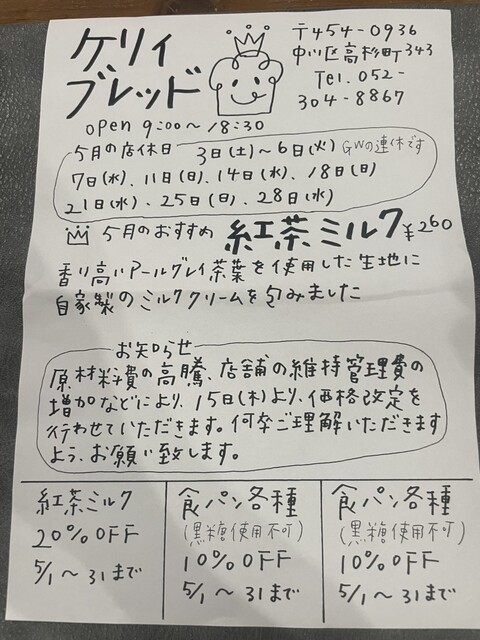 ケリィ
ブレッド
〒454-0936
中川区高杉町343
Tel.052-
304-8867
open 9:00～18:30
5月の店休日 3日(土)～6日(火) GWの連休です
7日(水)、11日(日)、14日(水)、18日(日)
21日(水)、25日(日)、28日(水)
5月のおすすめ 紅茶ミルク ¥260
香り高いアールグレイ茶葉を使用した生地に
自家製のミルククリームを包みました
お知らせ
原材料費の高騰、店舗の維持管理費の
増加などにより、15日(木)より、価格改定を
行わせていただきます。何卒ご理解いただきます
よう、お願い致します。
紅茶ミルク
20%OFF
5/1～31まで
食パン各種
(黒糖使用不可)
10%OFF
5/1～31まで
食パン各種
(黒糖使用不可)
10%OFF
5/1～31まで